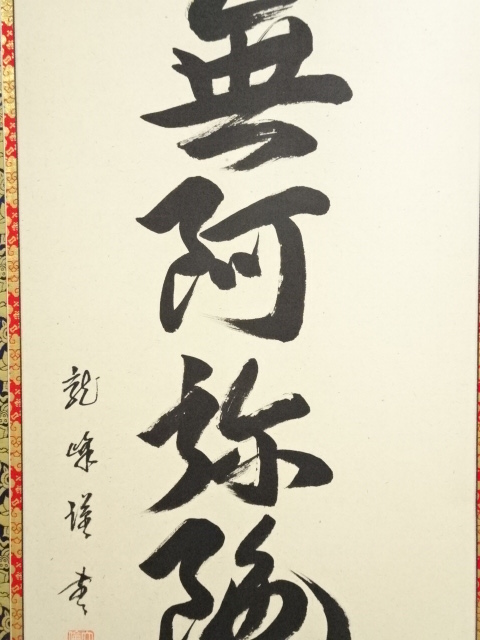 無阿弥陀
龍峰謹書